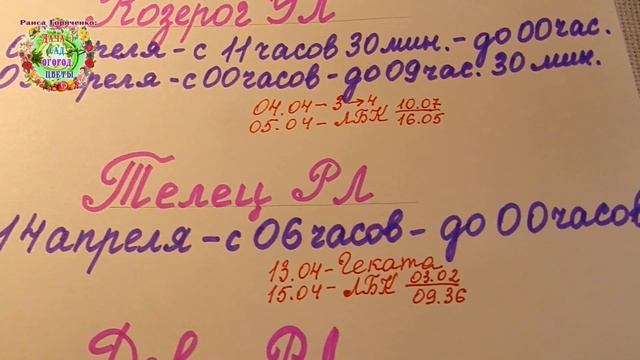 Раиса Горяченко:
ДАЧА
САД
ОГОРОД
ЦВЕТЫ
Козерог УЛ
апреля - с 11 часов 30 мин. - до 00 час.
апреля - с 00 часов - до 09 час. 30 мин.
04.04 - 3→4 10.07
05.04 - ЛБК 16.05
Телец РЛ
14 апреля - с 06 часов - до 00 часов
13.04 - Геката
15.04 - ЛБК 03.02
09.36
РЛ